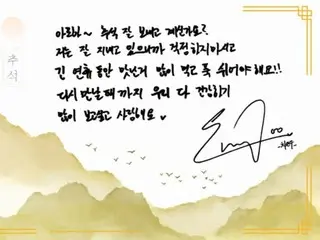 아로하~ 추석 잘 보내고 계신가요?
저는 잘 지내고 있으니까 걱정하지마시고
긴 연휴 동안 맛난거 많이 먹고 푹 쉬어야 해요!!
다시 만날 때 까지 우리 다 건강하기
많이 보고싶고 사랑해요
추석